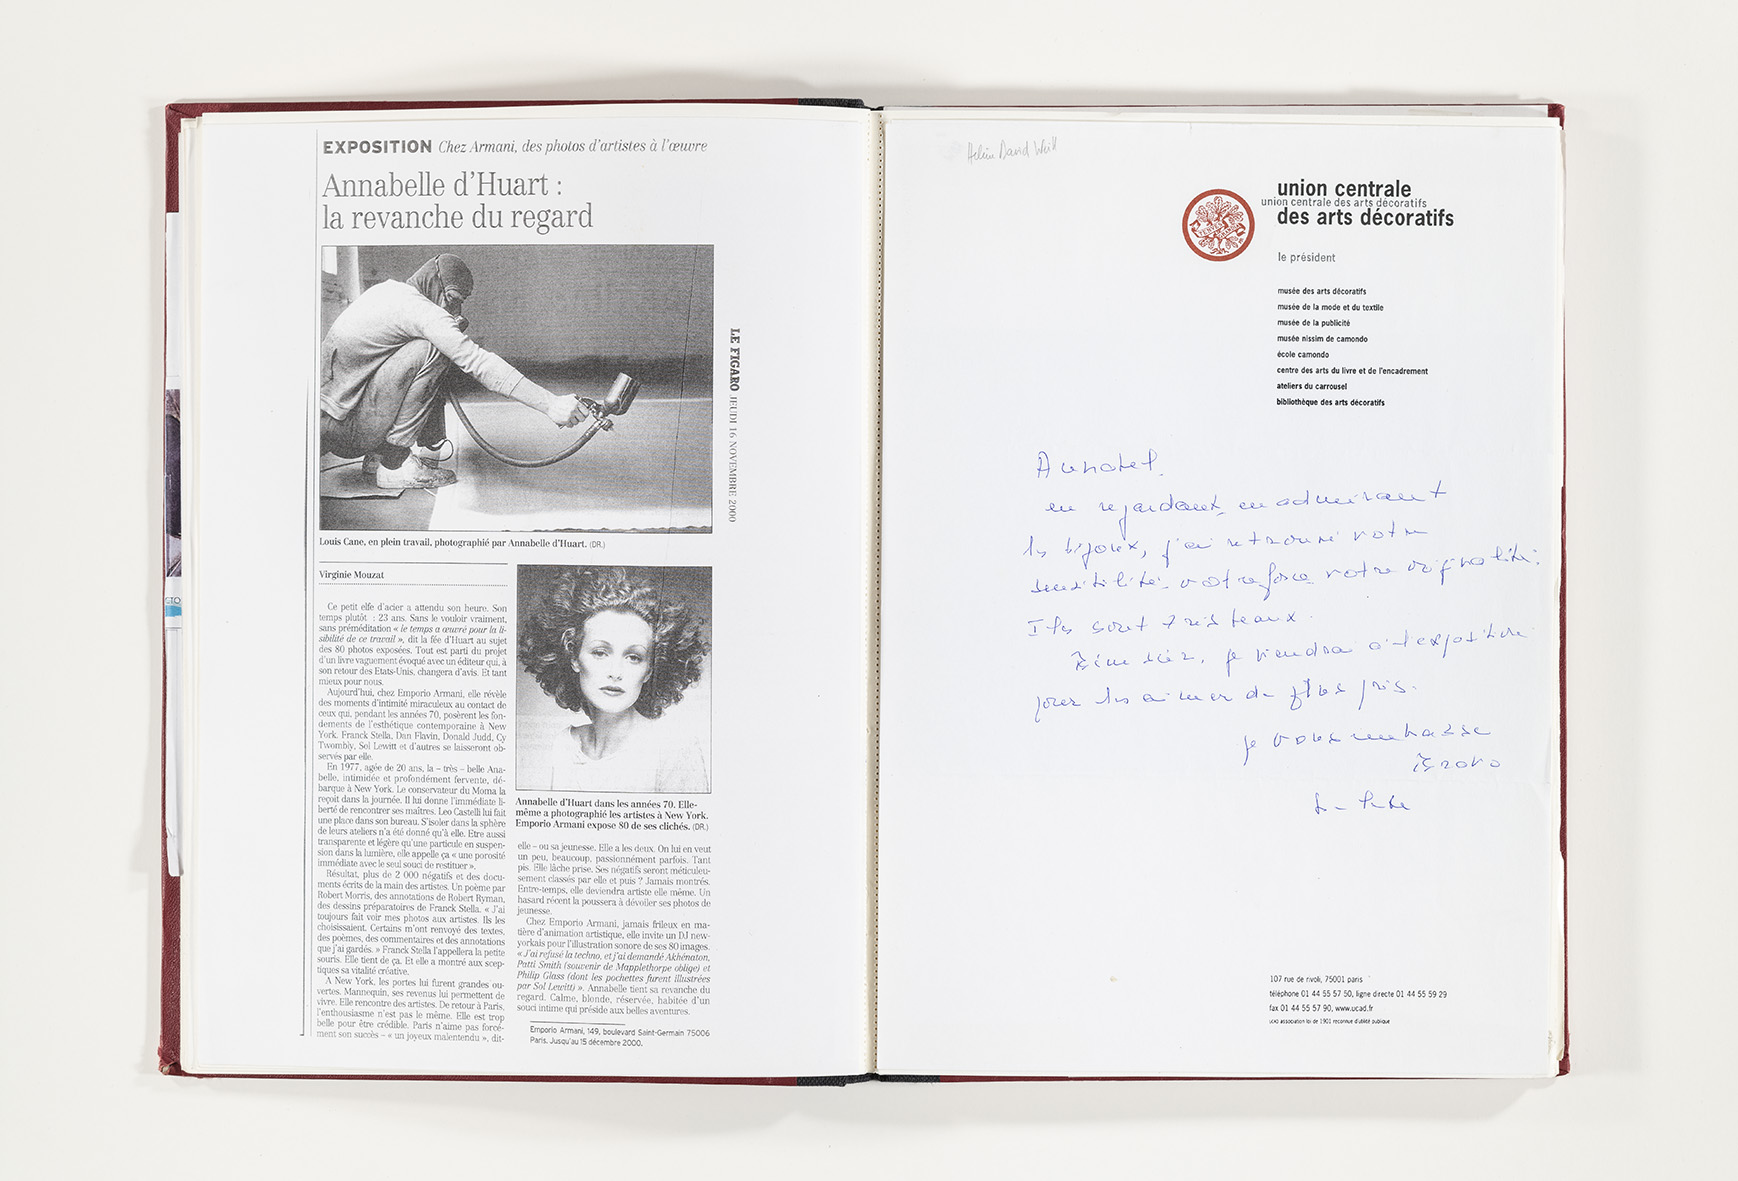 EXPOSITION Chez Armani, des photos d'artistes à l'œuvre
Annabelle d'Huart :
la revanche du regard
LE FIGARO JEUDI 16 NOVEMBRE 2000
Louis Cane, en plein travail, photographié par Annabelle d'Huart. (DR.)
Virginie Mouzat
Ce petit elfe d'acier a attendu son heure. Son
temps plutôt : 23 ans. Sans le vouloir vraiment,
sans préméditation « le temps a œuvré pour la li-
sibilité de ce travail », dit la fée d'Huart au sujet
des 80 photos exposées. Tout est parti du projet
d'un livre vaguement évoqué avec un éditeur qui, à
son retour des Etats-Unis, changera d'avis. Et tant
mieux pour nous.
Aujourd'hui, chez Emporio Armani, elle révèle
des moments d'intimité miraculeux au contact de
ceux qui, pendant les années 70, posèrent les fon-
dements de l'esthétique contemporaine à New
York. Franck Stella, Dan Flavin, Donald Judd, Cy
Twombly, Sol Lewitt et d'autres se laisseront ob-
servés par elle.
En 1977, agée de 20 ans, la – très – belle Ana-
belle, intimidée et profondément fervente, dé-
barque à New York. Le conservateur du Moma la
reçoit dans la journée. Il lui donne l'immédiate li-
berté de rencontrer ses maîtres. Leo Castelli lui fait
une place dans son bureau. S'isoler dans la sphère
de leurs ateliers n'a été donné qu'à elle. Etre aussi
transparente et légère qu'une particule en suspen-
sion dans la lumière, elle appelle ça « une porosité
immédiate avec le seul souci de restituer ».
Résultat, plus de 2 000 négatifs et des docu-
ments écrits de la main des artistes. Un poème par
Robert Morris, des annotations de Robert Ryman,
des dessins préparatoires de Franck Stella. « J'ai
toujours fait voir mes photos aux artistes. Ils les
choisissaient. Certains m'ont renvoyé des textes,
des poèmes, des commentaires et des annotations
que j'ai gardés. » Franck Stella l'appellera la petite
souris. Elle tient de ça. Et elle a montré aux scep-
tiques sa vitalité créative.
A New York, les portes lui furent grandes ou-
vertes. Mannequin, ses revenus lui permettent de
vivre. Elle rencontre des artistes. De retour à Paris,
l'enthousiasme n'est pas le même. Elle est trop
belle pour être crédible. Paris n'aime pas forcé-
ment son succès – « un joyeux malentendu », dit-
Annabelle d'Huart dans les années 70. Elle-
même a photographié les artistes à New York.
Emporio Armani expose 80 de ses clichés. (DR.)
elle – ou sa jeunesse. Elle a les deux. On lui en veut
un peu, beaucoup, passionnément parfois. Tant
pis. Elle lâche prise. Ses négatifs seront méticuleu-
sement classés par elle et puis ? Jamais montrés.
Entre-temps, elle deviendra artiste elle même. Un
hasard récent la poussera à dévoiler ses photos de
jeunesse.
Chez Emporio Armani, jamais frileux en ma-
tière d'animation artistique, elle invite un DJ new-
yorkais pour l'illustration sonore de ses 80 images.
« J'ai refusé la techno, et j'ai demandé Akhénaton,
Patti Smith (souvenir de Mapplethorpe oblige) et
Philip Glass (dont les pochettes furent illustrées
par Sol Lewitt) ». Annabelle tient sa revanche du
regard. Calme, blonde, réservée, habitée d'un
souci intime qui préside aux belles aventures.
Emporio Armani, 149, boulevard Saint-Germain 75006
Paris. Jusqu'au 15 décembre 2000.
Hélène David Weill
union centrale
union centrale des arts décoratifs
des arts décoratifs
le président
musée des arts décoratifs
musée de la mode et du textile
musée de la publicité
musée nissim de camondo
école camondo
centre des arts du livre et de l'encadrement
ateliers du carrousel
bibliothèque des arts décoratifs
Annabel,
en regardant, en admirant
les bijoux, j'ai retrouvé votre
sensibilité, votre force, votre originalité.
Ils sont très beaux.
Bien sûr, je viendrai à l'exposition
pour les aimer de plus près.
Je vous embrasse
Bravo
107 rue de rivoli, 75001 paris
téléphone 01 44 55 57 50, ligne directe 01 44 55 59 29
fax 01 44 55 57 90, www.ucad.fr
ucad association loi de 1901 reconnue d'utilité publique